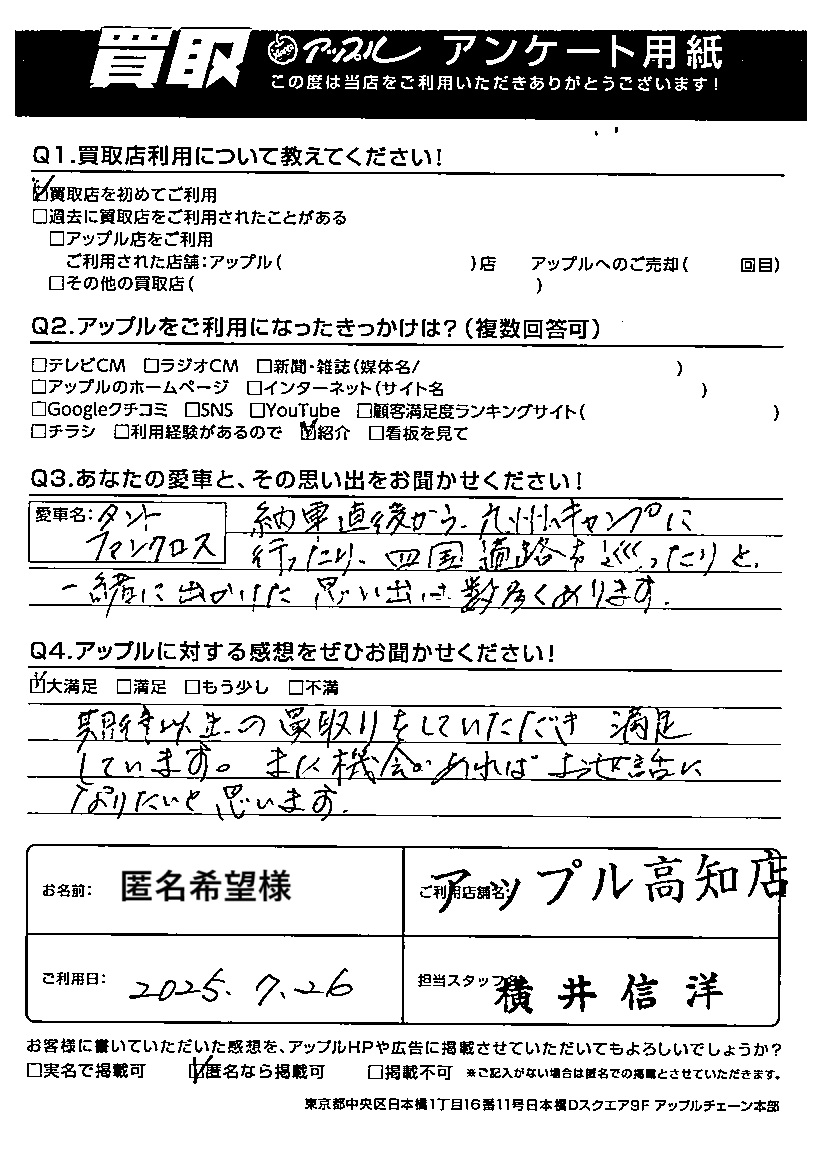 買取 アップル アンケート用紙
この度は当店をご利用いただきありがとうございます!
Q1.買取店利用について教えてください!
☑買取店を初めてご利用
□過去に買取店をご利用されたことがある
□アップル店をご利用
ご利用された店舗:アップル( )店 アップルへのご売却( 回目)
□その他の買取店( )
Q2.アップルをご利用になったきっかけは?(複数回答可)
□テレビCM □ラジオCM □新聞・雑誌(媒体名/ )
□アップルのホームページ □インターネット(サイト名 )
□Googleクチコミ □SNS □YouTube □顧客満足度ランキングサイト( )
□チラシ □利用経験があるので ☑紹介 □看板を見て
Q3.あなたの愛車と、その思い出をお聞かせください!
愛車名:タント 納車直後から、九州キャンプに
ファンクロス 行ったり、四国遍路を巡ったりと、
一緒に出かけた思い出は数多くあります。
Q4.アップルに対する感想をぜひお聞かせください!
☑大満足 □満足 □もう少し □不満
期待以上の買取りをしていただき 満足
しています。また機会があればお世話に
なりたいと思います。
お名前: 匿名希望様 ご利用店舗名: アップル高知店
ご利用日: 2025.7.26 担当スタッフ名: 横井信洋
お客様に書いていただいた感想を、アップルHPや広告に掲載させていただいてもよろしいでしょうか?
□実名で掲載可 ☑匿名なら掲載可 □掲載不可 ※ご記入がない場合は匿名での掲載とさせていただきます。
東京都中央区日本橋1丁目16番11号日本橋Dスクエア9F アップルチェーン本部